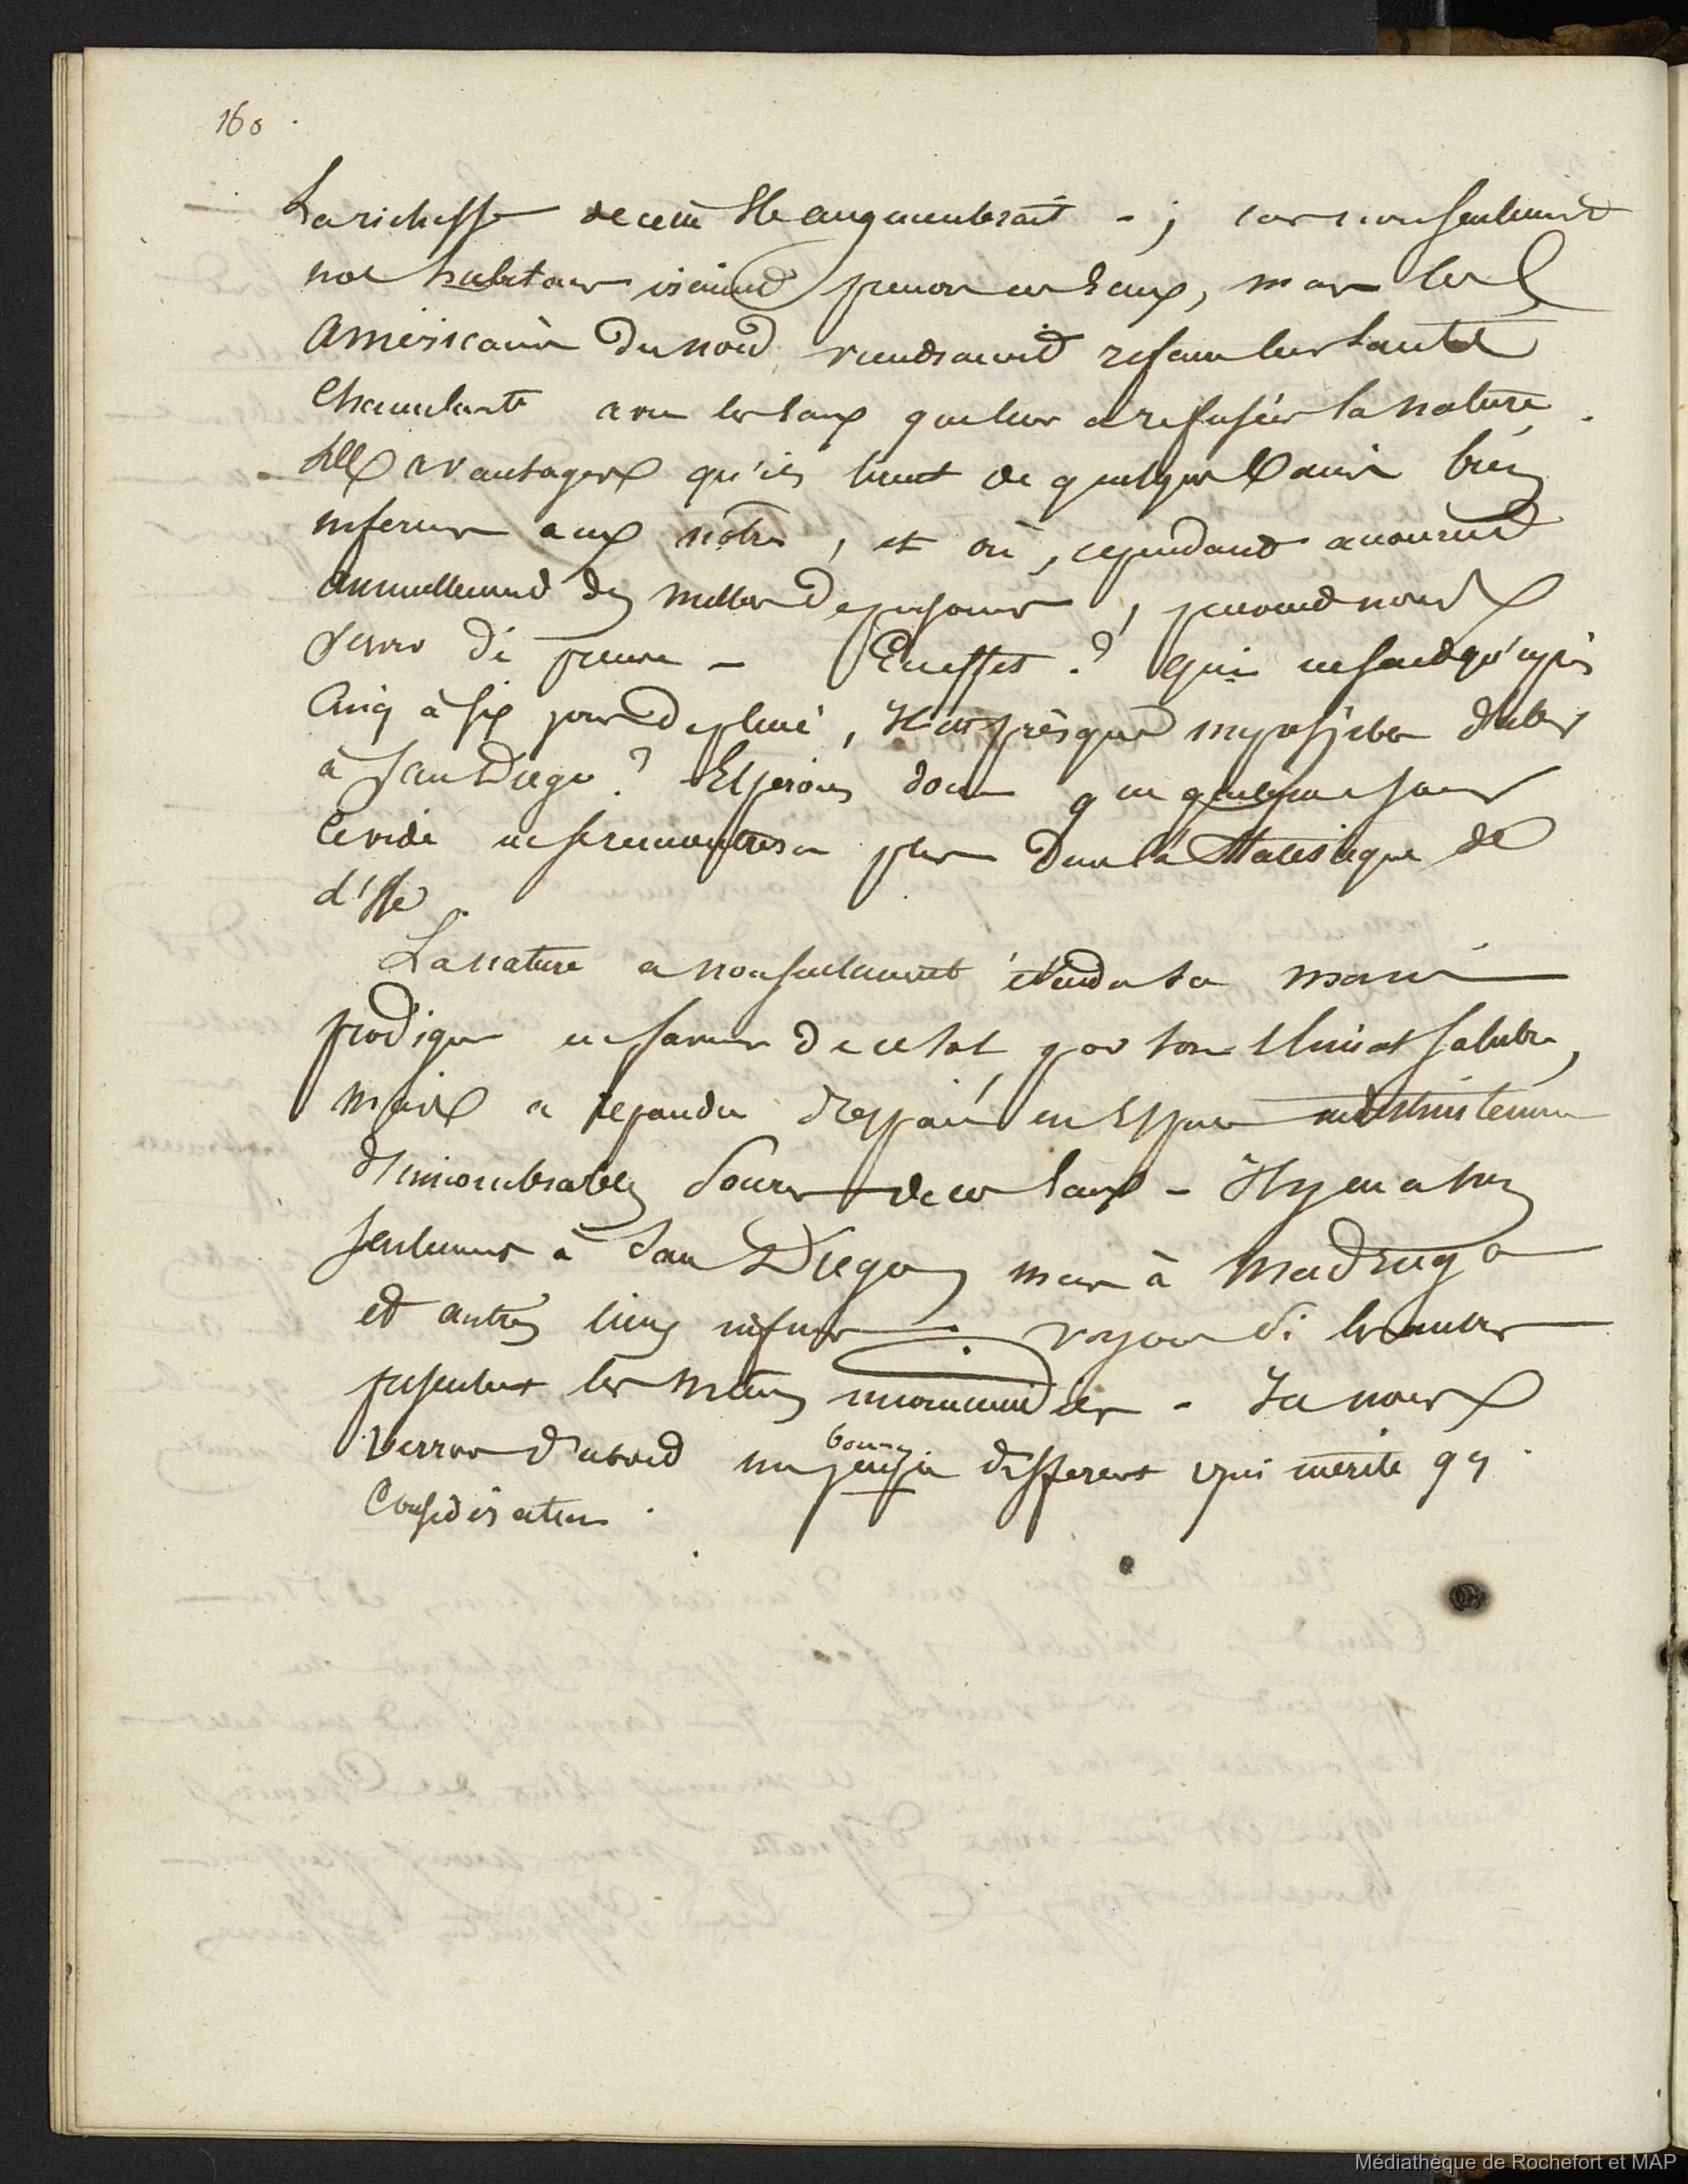 160.
La richesse de cette Ile augmenterait - ; car non seulement
nos habitans iraient prendre ces Eaux, mais les
Américains du nord viendraient refaire leur Santé
Chancelante avec les Eaux que leur a refusées la nature.
Les avantages qu'ils tirent de quelques bains bien
inferieurs aux nôtres, et où, cependant accourent
annuellement des milliers de personnes, peuvent nous
servir de preuve - En effet ? Qui ne sait qu'après
Cinq à six jours de pluie, Il est presque impossible d'aller
à San Diego ? Esperons donc que quelque jour
Ce vide ne se rencontrera plus dans la Statistique de
l'Ile.
La nature a non seulement étendu sa main
prodigue en faveur de ce sol par son Climat salubre,
mais a repandu d'espace en Espace
d'innombrables Sources de ces Eaux - Il y en a non
seulement à San Diego, mais à Madruga
et autres lieux voyons si les autres
presentent les mêmes - Ici nous
verrons d'abord un bourg different qui mérite qq.
Considération.
Médiathèque de Rochefort et MAP